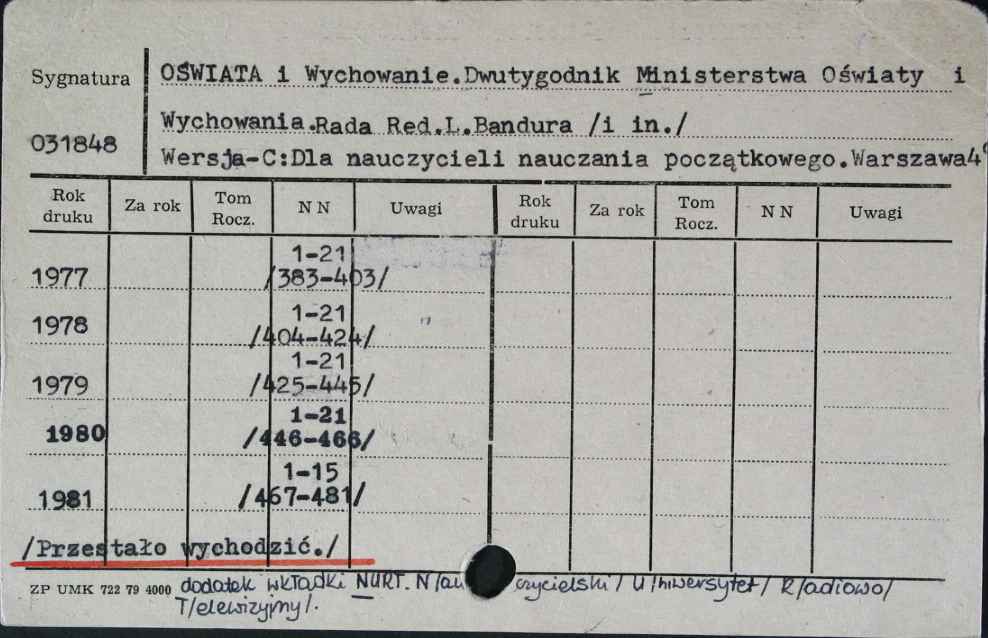 Sygnatura
OŚWIATA i Wychowanie.Dwutygodnik Ministerstwa Oświaty i
Wychowania.Rada Red.L.Bandura /i in./
031848
Wersja-C:Dla nauczycieli nauczania początkowego.Warszawa4°
Rok druku Za rok Tom Rocz. N N Uwagi Rok druku Za rok Tom Rocz. N N Uwagi
1-21
1977 /383-403/
1-21
1978 /404-424/
1-21
1979 /425-445/
1-21
1980 /446-466/
1-15
1981 /467-481/
/Przestało wychodzić./
ZP UMK 722 79 4000 dodatek wkładki NURT. N/au czycielski/ U/niwersytet/ R/adiowo/
T/elewizyjny/.